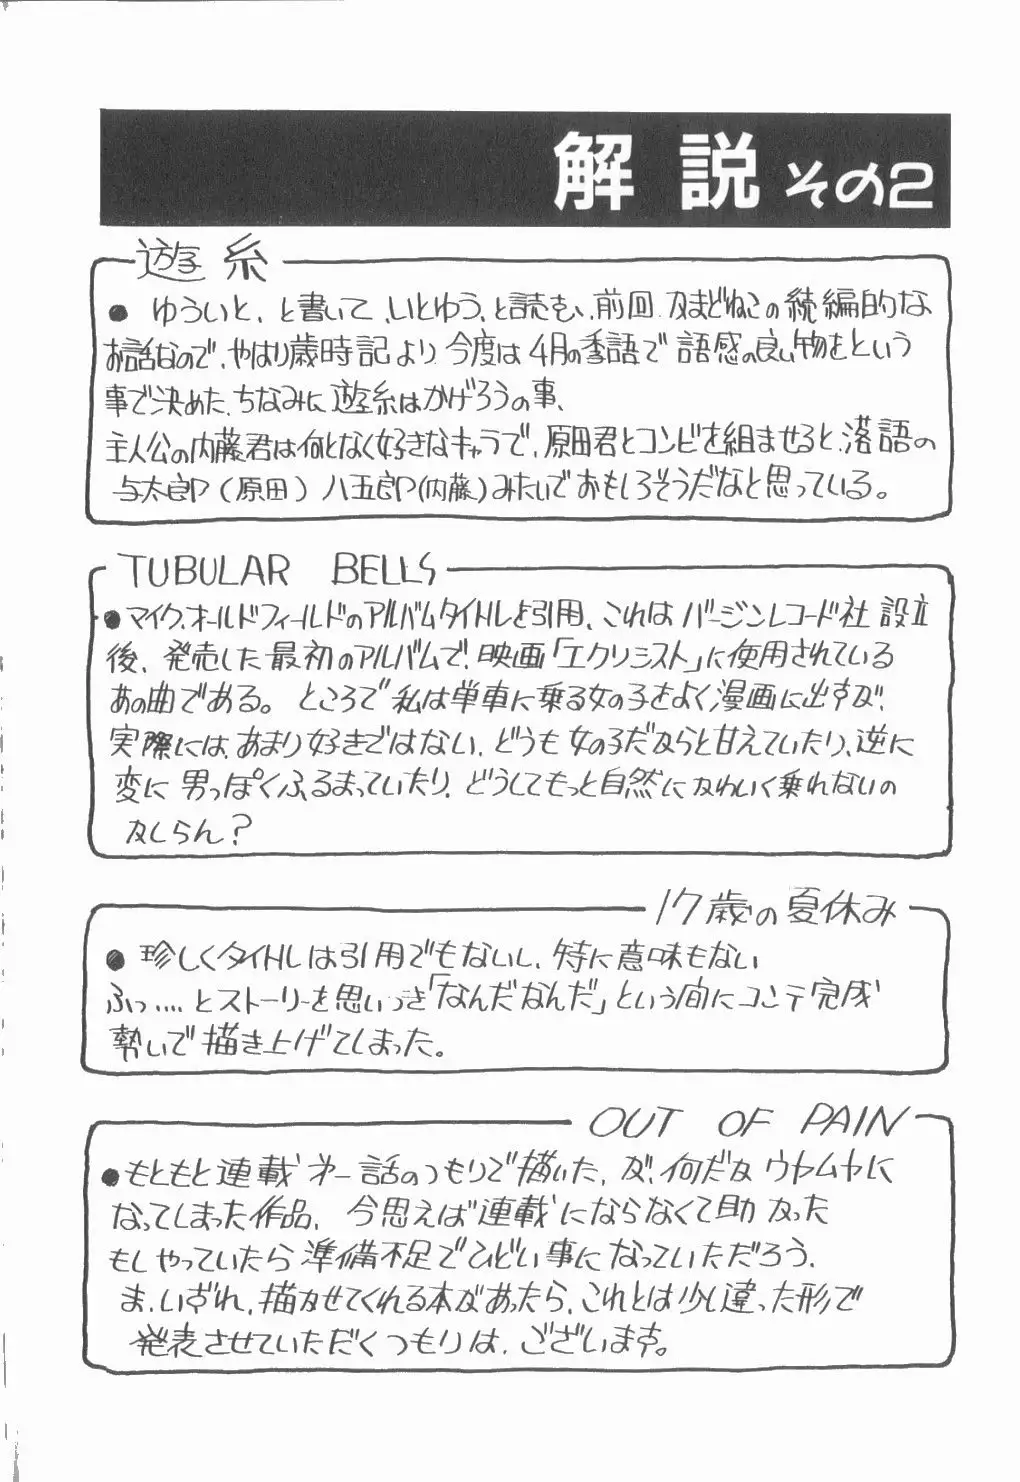 解説 その2
遊糸
● ゆういと、と書いて、いとゆう、と読む、前回、かまどねこの続編的な
お話なので、やはり歳時記より、今度は4月の季語で語感の良い物をという
事で決めた、ちなみに遊糸はかげろうの事、
主人公の内藤君は何となく好きなキャラで、原田君とコンビを組ませると、落語の
与太郎(原田)八五郎(内藤)みたいでおもしろそうだなと思っている。
TUBULAR BELLS
●マイク.オールドフィールドのアルバムタイトルを引用、これはバージンレコード社設立
後、発売した最初のアルバムで、映画「エクソシスト」に使用されている
あの曲である。ところで私は単車に乗る女の子をよく漫画に出すが、
実際には、あまり好きではない、どうも女の子だからと甘えていたり、逆に
変に男っぽくふるまっていたり、どうしてもっと自然にかわいく乗れないの
かしらん?
17歳の夏休み
● 珍しくタイトルは引用でもないし、特に意味もない
ふっ....とストーリーを思いつき「なんだなんだ」という間にコンテ完成
勢いで描き上げてしまった。
OUT OF PAIN
●もともと連載才一話のつもりで描いた、が、何だかウヤムヤに
なってしまった作品、今思えば連載にならなくて助かった
もしやっていたら準備不足でひどい事になっていただろう、
ま、いずれ、描かせてくれる本があったら、これとは少し違った形で
発表させていただくつもりは、ございます。